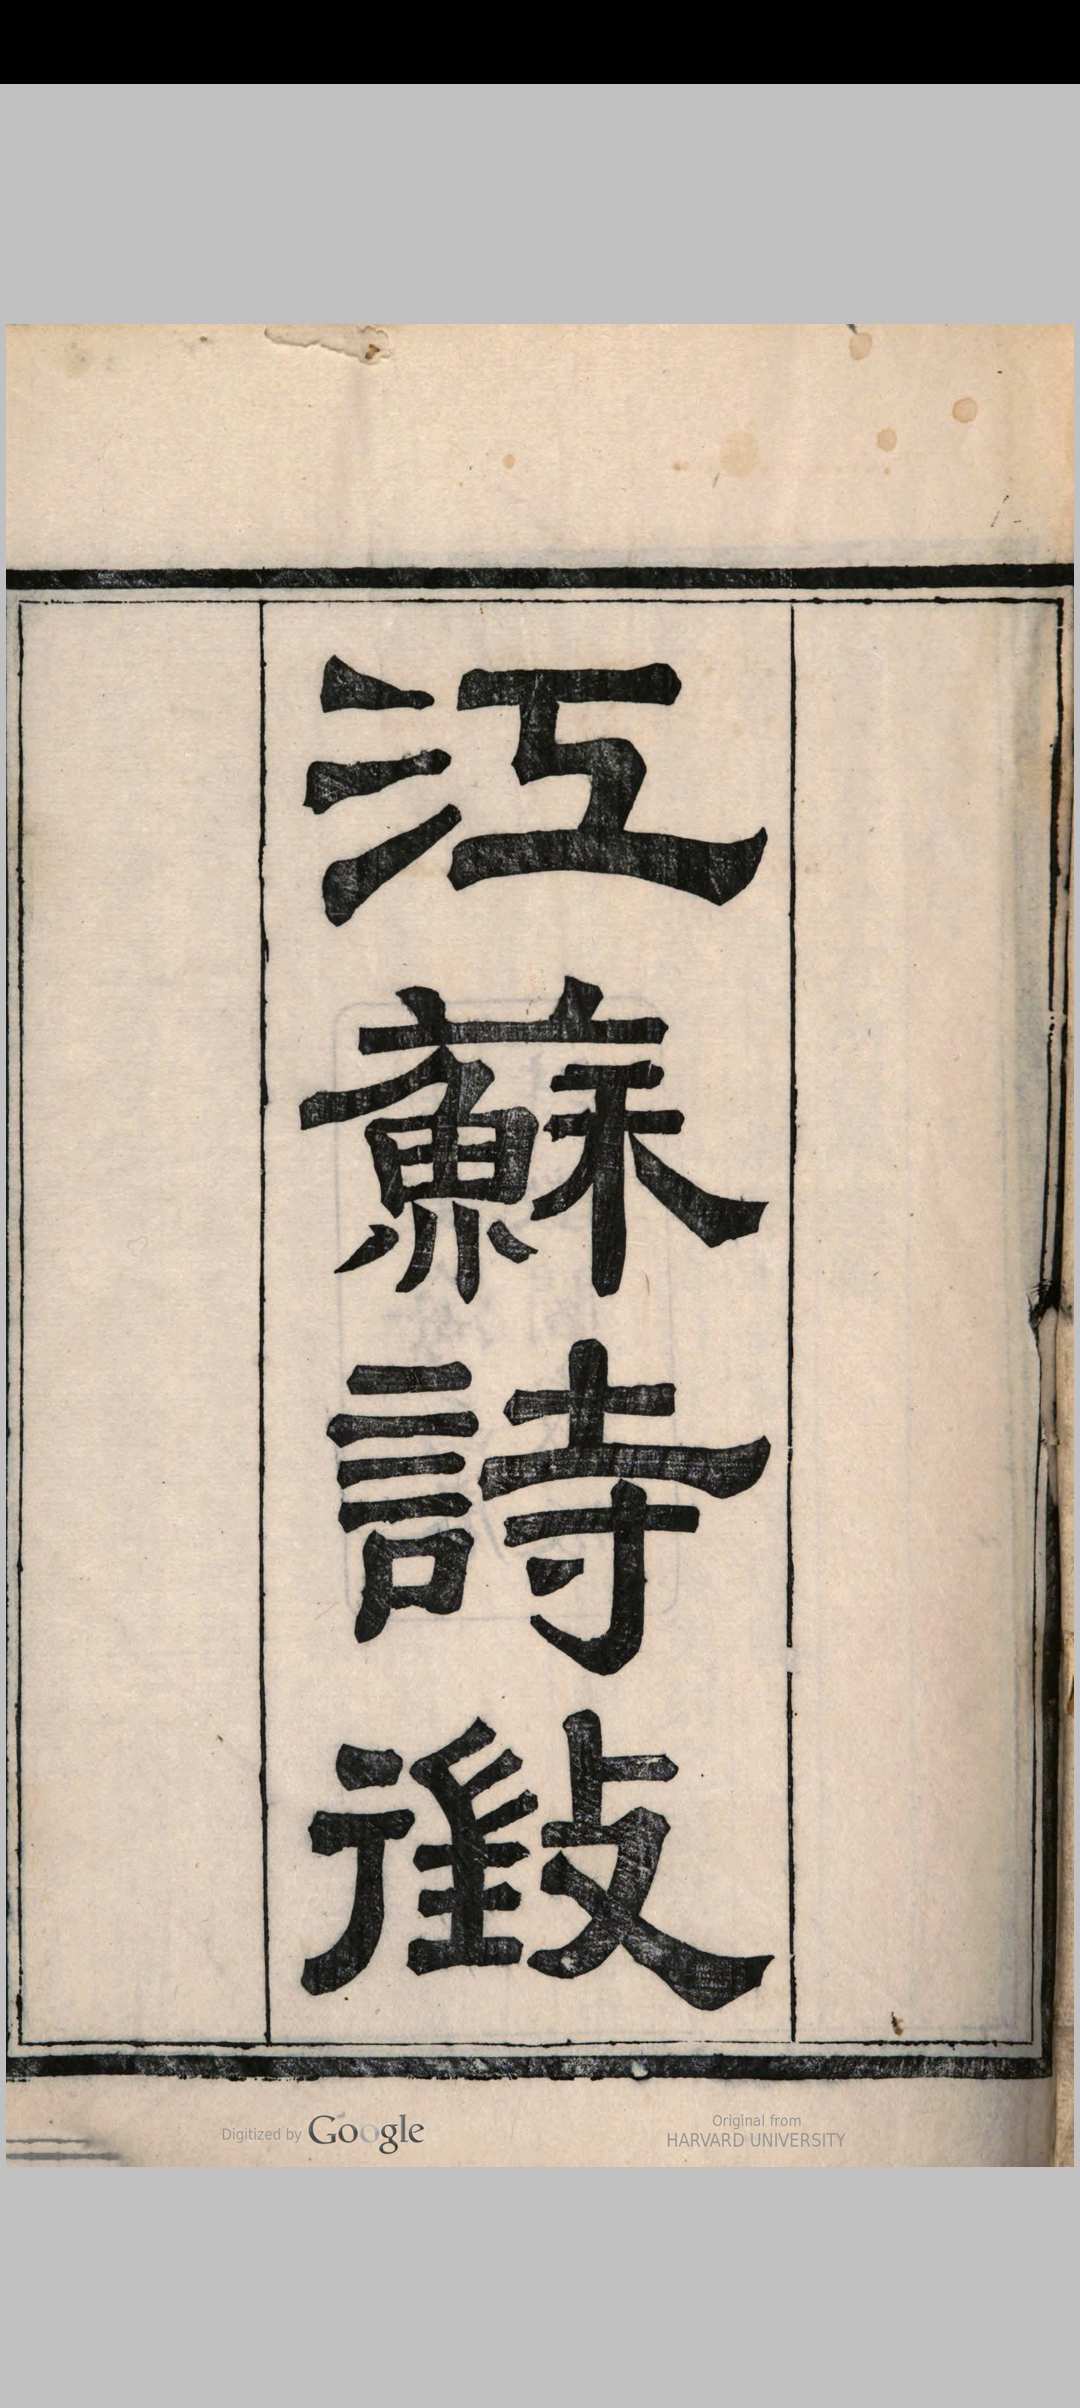 江蘇詩徵
Digitized by Google
Original from
HARVARD UNIVERSITY